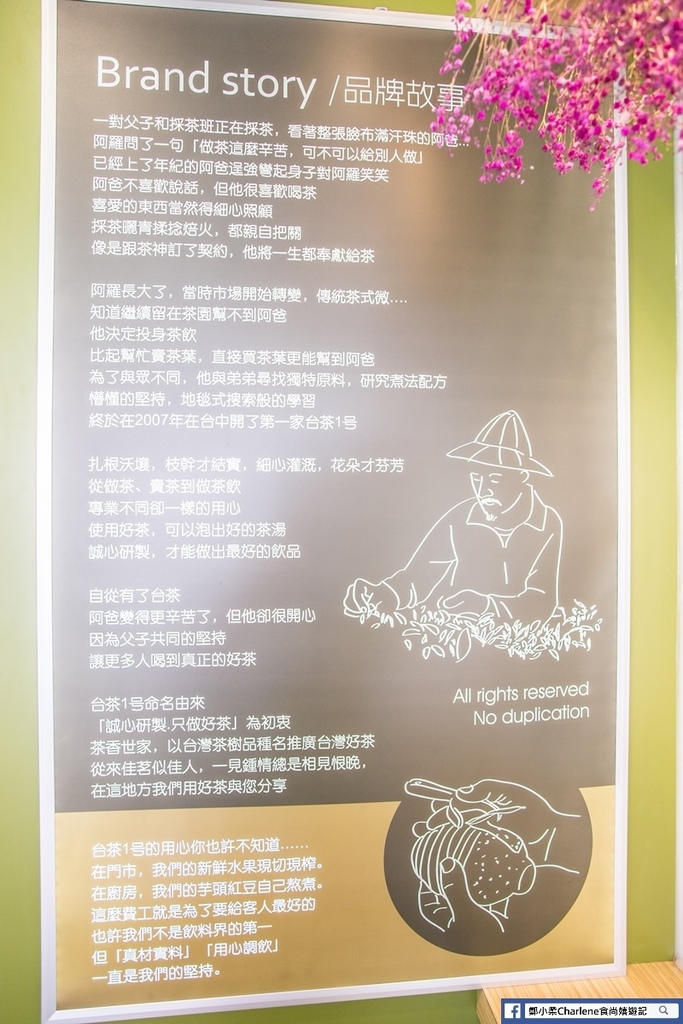 Brand story /品牌故事
一對父子和採茶班正在採茶，看著整張臉布滿汗珠的阿爸...
阿羅問了一句「做茶這麼辛苦，可不可以給別人做」
已經上了年紀的阿爸逞強彎起身子對阿羅笑笑
阿爸不喜歡說話，但他很喜歡喝茶
喜愛的東西當然得細心照顧
採茶曬青揉捻焙火，都親自把關
像是跟茶神訂了契約，他將一生都奉獻給茶
阿羅長大了，當時市場開始轉變，傳統茶式微....
知道繼續留在茶園幫不到阿爸
他決定投身茶飲
比起幫忙賣茶葉，直接買茶葉更能幫到阿爸
為了與眾不同，他與弟弟尋找獨特原料，研究煮法配方
懵懂的堅持，地毯式搜索般的學習
終於在2007年在台中開了第一家台茶1号
扎根沃壤，枝幹才結實，細心灌溉，花朵才芬芳
從做茶、賣茶到做茶飲
專業不同卻一樣的用心
使用好茶，可以泡出好的茶湯
誠心研製，才能做出最好的飲品
自從有了台茶
阿爸變得更辛苦了，但他卻很開心
因為父子共同的堅持
讓更多人喝到真正的好茶
台茶1号命名由來
「誠心研製.只做好茶」為初衷
茶香世家，以台灣茶樹品種名推廣台灣好茶
從來佳茗似佳人，一見鍾情總是相見恨晚，
在這地方我們用好茶與您分享
All rights reserved
No duplication
台茶1号的用心你也許不知道......
在門市，我們的新鮮水果現切現榨。
在廚房，我們的芋頭紅豆自己熬煮。
這麼費工就是為了要給客人最好的
也許我們不是飲料界的第一
但「真材實料」「用心調飲」
一直是我們的堅持。
鄭小柔Charlene食尚嬉遊記